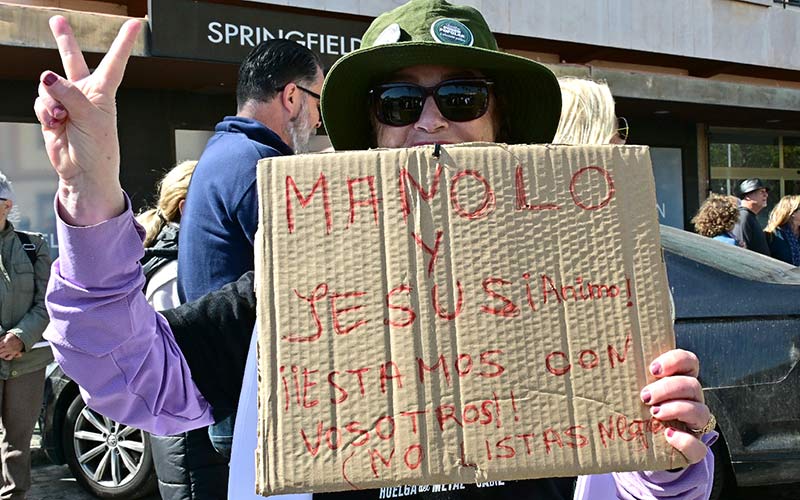 SPRINGFIELD
MANOLO
Y
JESUS ¡Animo!
¡¡ESTAMOS CON
VOSOTROS!!
(NO LISTAS NEGRAS
HUELGA DEL METAL